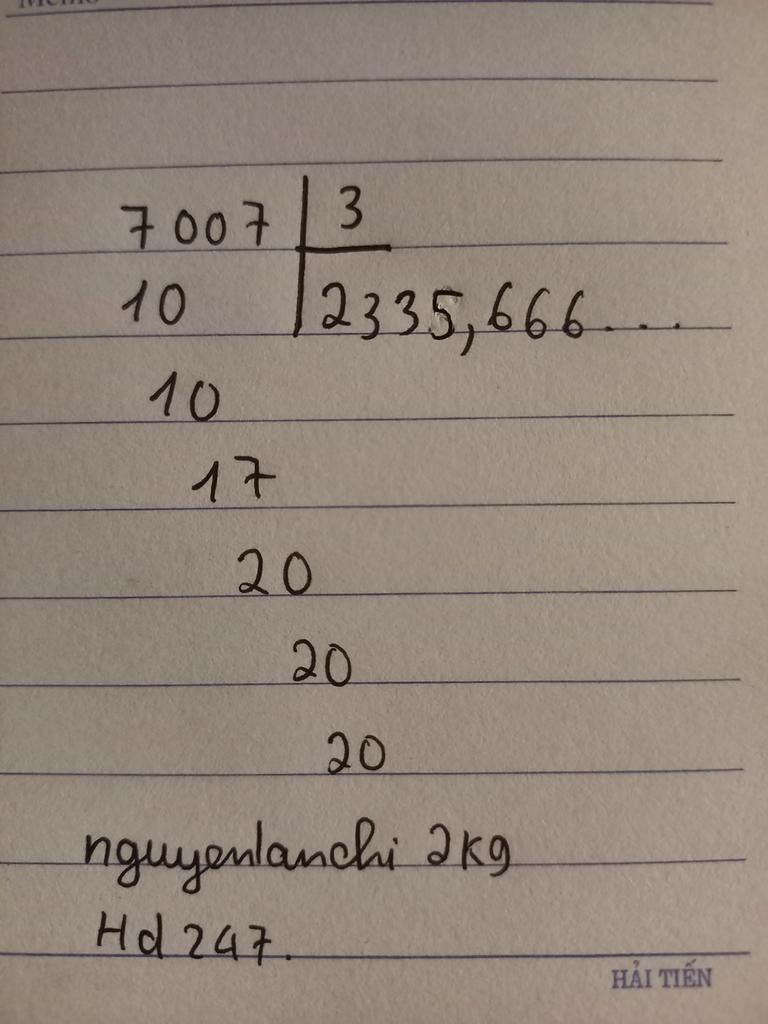 7007 3
10 2335,666...
10
17
20
20
20
nguyenlanchi 2kg
Hd 247.
HẢI TIẾN